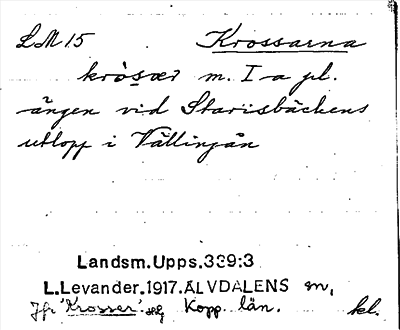 LM 15 Krossarna
kròsær m. I a pl.
ängen vid Starisbäckens
utlopp i Vällingån
Landsm.Upps.339:3
L.Levander.1917.ÄLVDALENS sn,
Jfr 'Krosser' Kopp. län. kl.